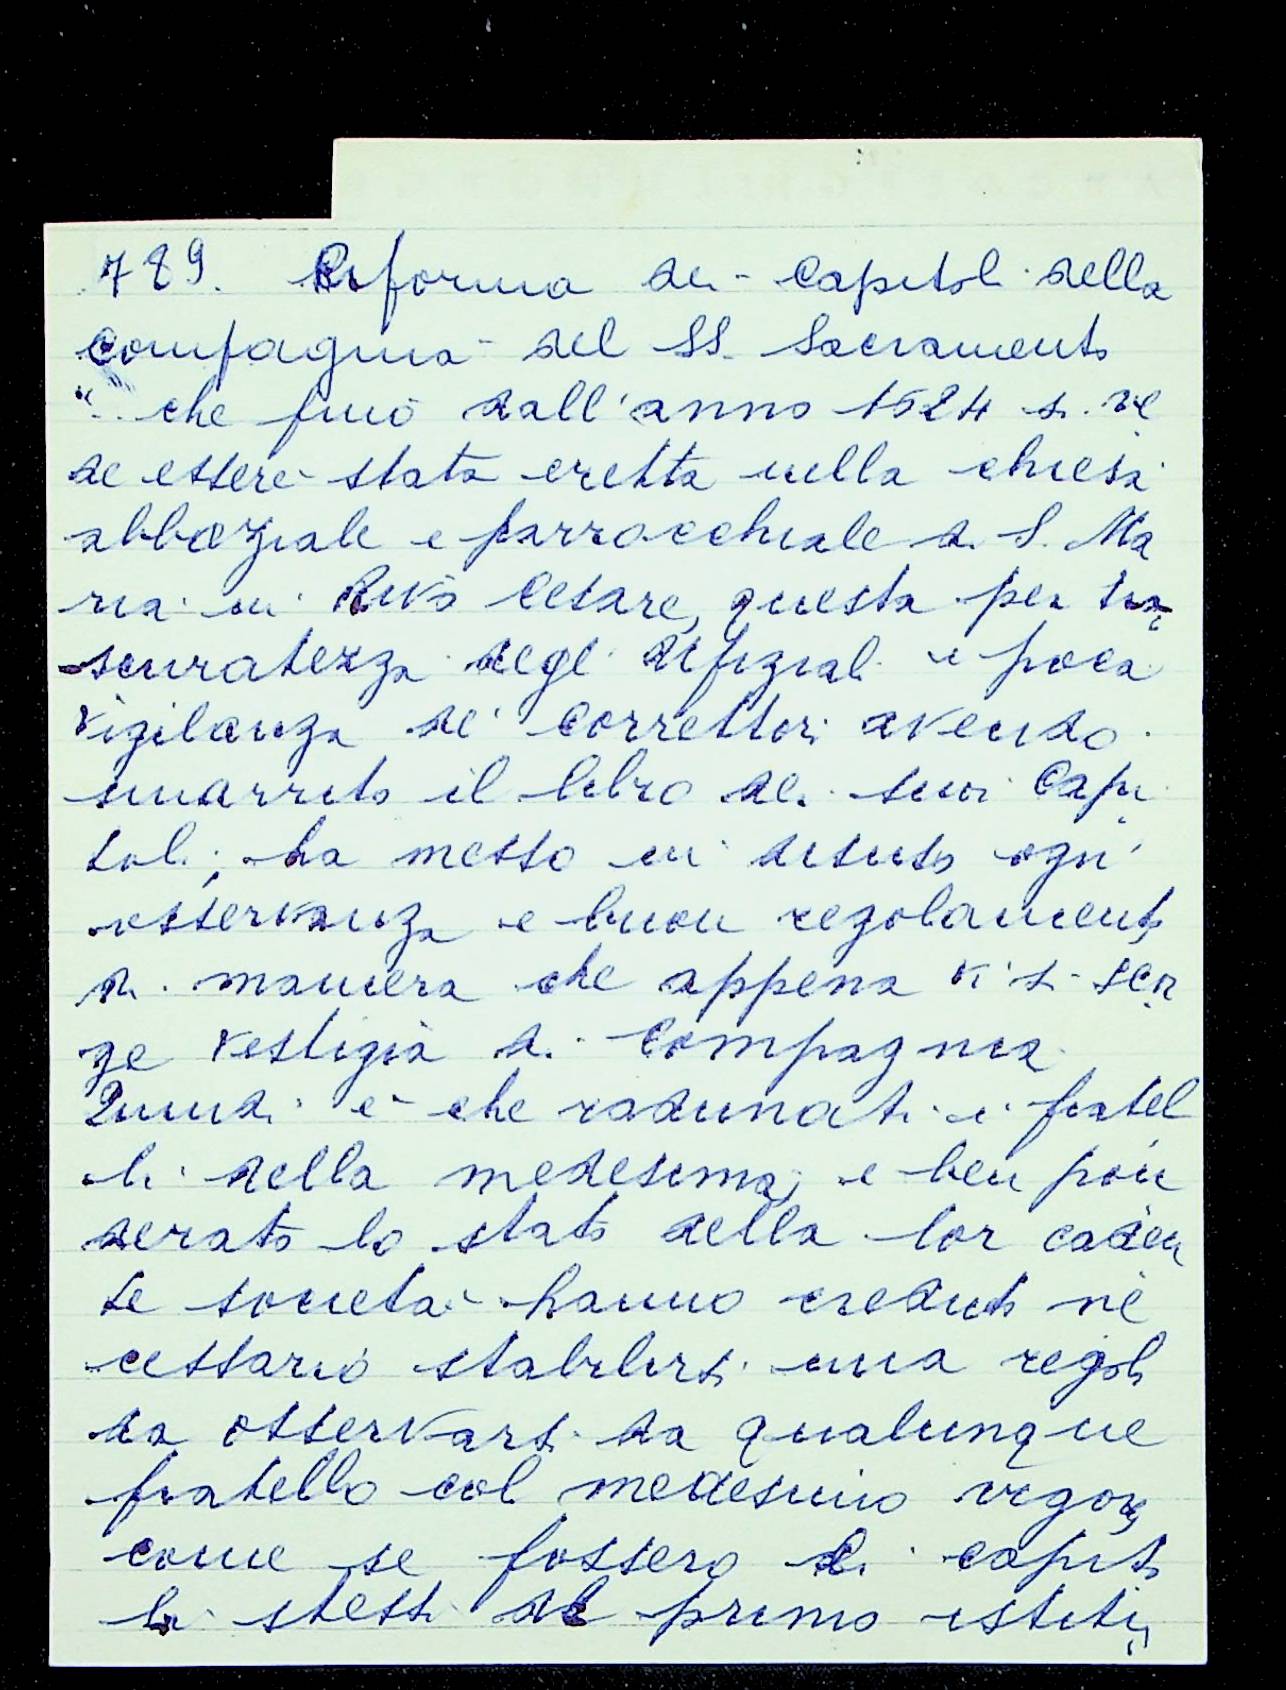 789. Riforma dei Capitoli della
compagnia del SS. Sacramento
"... che fino dall'anno 1524 si ve
de essere stata eretta nella chiesa
abbaziale e parrocchiale di S. Ma
ria in Rivo Cesare, questa per tra
scuratezza degl'Ufiziali e poca
vigilanza de' Correttori avendo
smarrito il libro de' suoi Capi
toli, ha messo in disuso ogni
osservanza e buon regolamento
di maniera che appena vi si scor
ge vestigia di Compagnia.
Quindi è che radunati i fratel
li della medesima, e ben pon
derato lo stato della lor caden
te società hanno creduto ne
cessario stabilirsi una regola
da osservarsi da qualunque
fratello col medesimo vigore
come se fossero li capito
li stessi del primo istitu